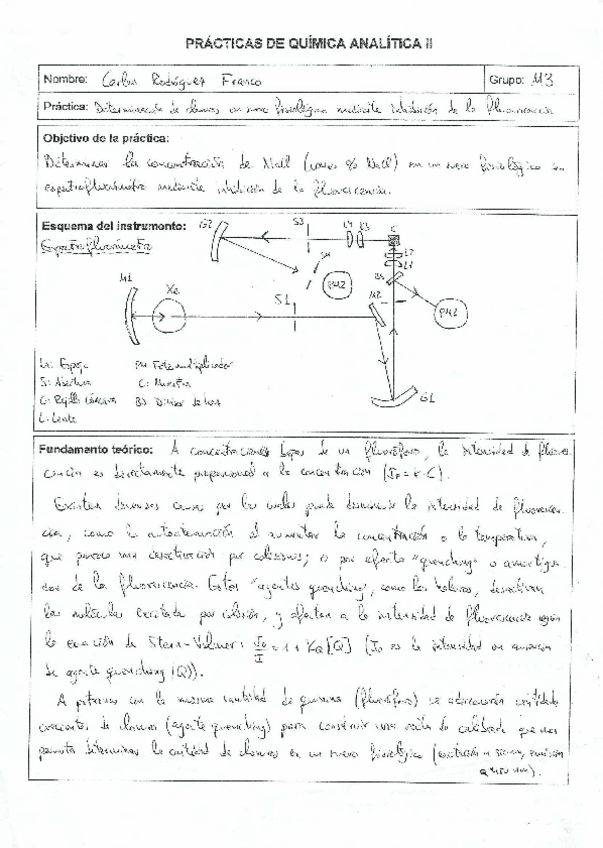 PRÁCTICAS DE QUÍMICA ANALÍTICA II
Nombre: Carlos Rodríguez Franco Grupo: M3
Práctica: Determinación de cloruros en suero fisiológico mediante inhibición de la fluorescencia
Objetivo de la práctica:
Determinar la concentración de NaCl (como % NaCl) en un suero fisiológico en
espectrofluorímetro mediante inhibición de la fluorescencia.
Esquema del instrumento:
Espectrofluorímetro
G2 S3 L4 L3 C
S4 L2
L1
PM2 BS
M1 Xe S1 M2 PM1
G1
M: Espejo PM: Fotomultiplicador
S: Abertura C: Muestra
G: Rejilla cóncava BS: Divisor de haz
L: Lente
Fundamento teórico: A concentraciones bajas de un fluoróforo, la intensidad de fluores
cencia es directamente proporcional a la concentración (IF = k·C).
Existen diversas causas por las cuales puede disminuir la intensidad de fluorescen
cia, como la autoatenuación al aumentar la concentración o la temperatura,
que provoca una desactivación por colisiones; o por efecto "quenching" o amortigua
dor de la fluorescencia. Estos "agentes quenching", como los haluros, desactivan
las moléculas excitadas por colisión, y afectan a la intensidad de fluorescencia según
la ecuación de Stern-Volmer: I0/I = 1 + KQ[Q] (I0 es la intensidad en ausencia
de agente quenching (Q)).
A patrones con la misma cantidad de quinina (fluoróforo) se adicionarán cantidades
crecientes de cloruro (agente quenching) para construir una recta de calibrado que nos
permita determinar la cantidad de cloruros en un suero fisiológico (excitación a nm, emisión
a 450 nm).